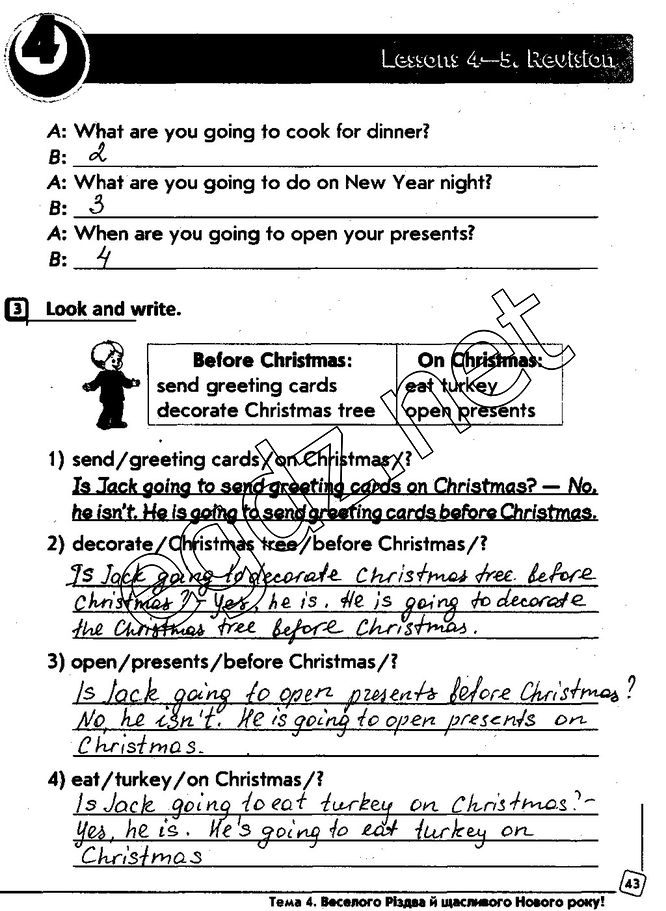 4
Lessons 4—5. Revision
A: What are you going to cook for dinner?
B: 2
A: What are you going to do on New Year night?
B: 3
A: When are you going to open your presents?
B: 4
3 Look and write.
Before Christmas:
send greeting cards
decorate Christmas tree
On Christmas:
eat turkey
open presents
1) send/greeting cards/on Christmas/?
Is Jack going to send greeting cards on Christmas? — No,
he isn't. He is going to send greeting cards before Christmas.
2) decorate/Christmas tree/before Christmas/?
Is Jack going to decorate Christmas tree before
Christmas? - Yes, he is. He is going to decorate
the Christmas tree before Christmas.
3) open/presents/before Christmas/?
Is Jack going to open presents before Christmas?
No, he isn't. He is going to open presents on
Christmas.
4) eat/turkey/on Christmas/?
Is Jack going to eat turkey on Christmas? -
Yes, he is. He's going to eat turkey on
Christmas
43
Тема 4. Веселого Різдва й щасливого Нового року!
egdz.net